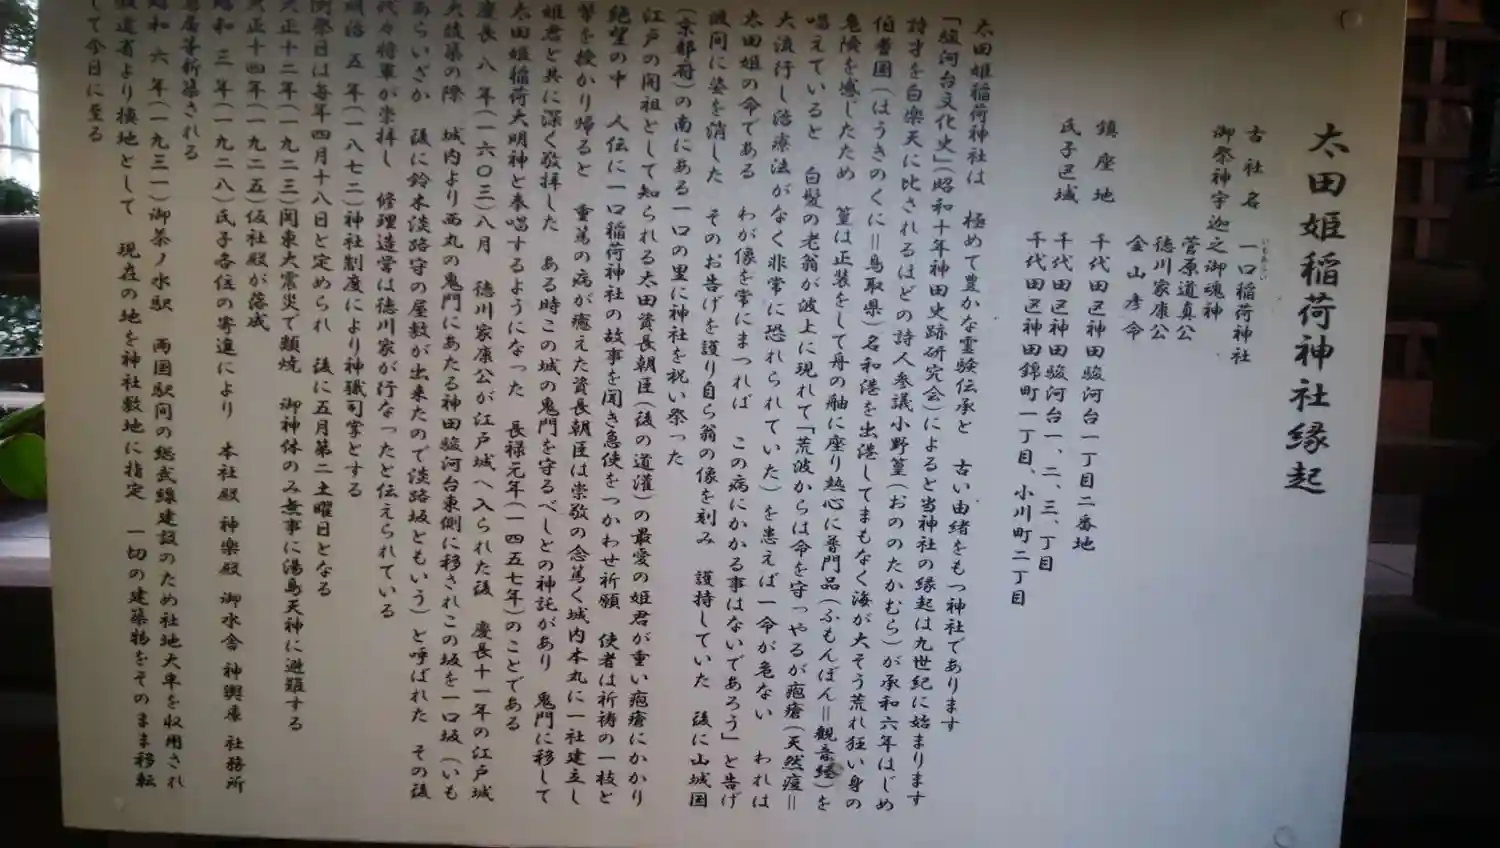 太田姫稲荷神社縁起
古社名 一口稲荷神社
いもあらい
御祭神宇迦之御魂神
菅原道真公
徳川家康公
金山彦命
鎮座地 千代田区神田駿河台一丁目二番地
氏子区域 千代田区神田駿河台一、二、三、丁目
千代田区神田錦町一丁目、小川町二丁目
太田姫稲荷神社は 極めて豊かな霊験伝承と 古い由緒をもつ神社であります
「駿河台文化史」(昭和十年神田史跡研究会)によると当神社の縁起は九世紀に始まります
詩才を白楽天に比されるほどの詩人参議小野篁(おののたかむら)が承和六年はじめ
伯耆国(ほうきのくに=鳥取県)名和港を出港してまもなく海が大そう荒れ狂い身の
危険を感じたため 篁は正装をして舟の舳に座り熱心に普門品(ふもんぼん=観音経)を
唱えていると 白髪の老翁が波上に現れて「荒波からは命を守つやるが疱瘡(天然痘=
大流行し治療法がなく非常に恐れられていた)を患えば一命が危ない われは
太田姫の命である わが像を常にまつれば この病にかかる事はないであろう」と告げ
波間に姿を消した そのお告げを護り自ら翁の像を刻み 護持していた 後に山城国
(京都府)の南にある一口の里に神社を祝い祭った
江戸の開祖として知られる太田資長朝臣(後の道灌)の最愛の姫君が重い疱瘡にかかり
絶望の中 人伝に一口稲荷神社の故事を聞き急使をつかわせ祈願 使者は祈祷の一枝と
等を授かり帰ると 重篤の病が癒えた資長朝臣は崇敬の念篤く城内本丸に一社建立し
姫君と共に深く敬拝した ある時この城の鬼門を守るべしとの神託があり 鬼門に移して
太田姫稲荷大明神と奉唱するようになった 長禄元年(一四五七年)のことである
慶長 八 年(一六〇三)八月 徳川家康公が江戸城へ入られた後 慶長十一年の江戸城
大改築の際 城内より西丸の鬼門にあたる神田駿河台東側に移されこの坂を一口坂(いも
あらいざか 後に鈴木淡路守の屋敷が出来たので淡路坂ともいう)と呼ばれた その後
代々将軍が崇拝し 修理造営は徳川家が行なったと伝えられている
明治 五 年(一八七二)神社制度により神職司掌とする
例祭日は毎年四月十八日と定められ 後に五月第二土曜日となる
大正十二年(一九二三)関東大震災て顕焼 御神体のみ無事に湯島天神に避難する
大正十四年(一九二五)仮社殿が落成
昭和 三 年(一九二八)氏子各位の寄進により 本社殿 神楽殿 御水舎 神輿庫 社務所
鳥居等新築される
昭和 六 年(一九三一)御茶ノ水駅 両国駅間の総武線建設のため社地大半を収用され
鉄道省より換地として 現在の地を神社敷地に指定 一切の建築物をそのまま移転
して今日に至る